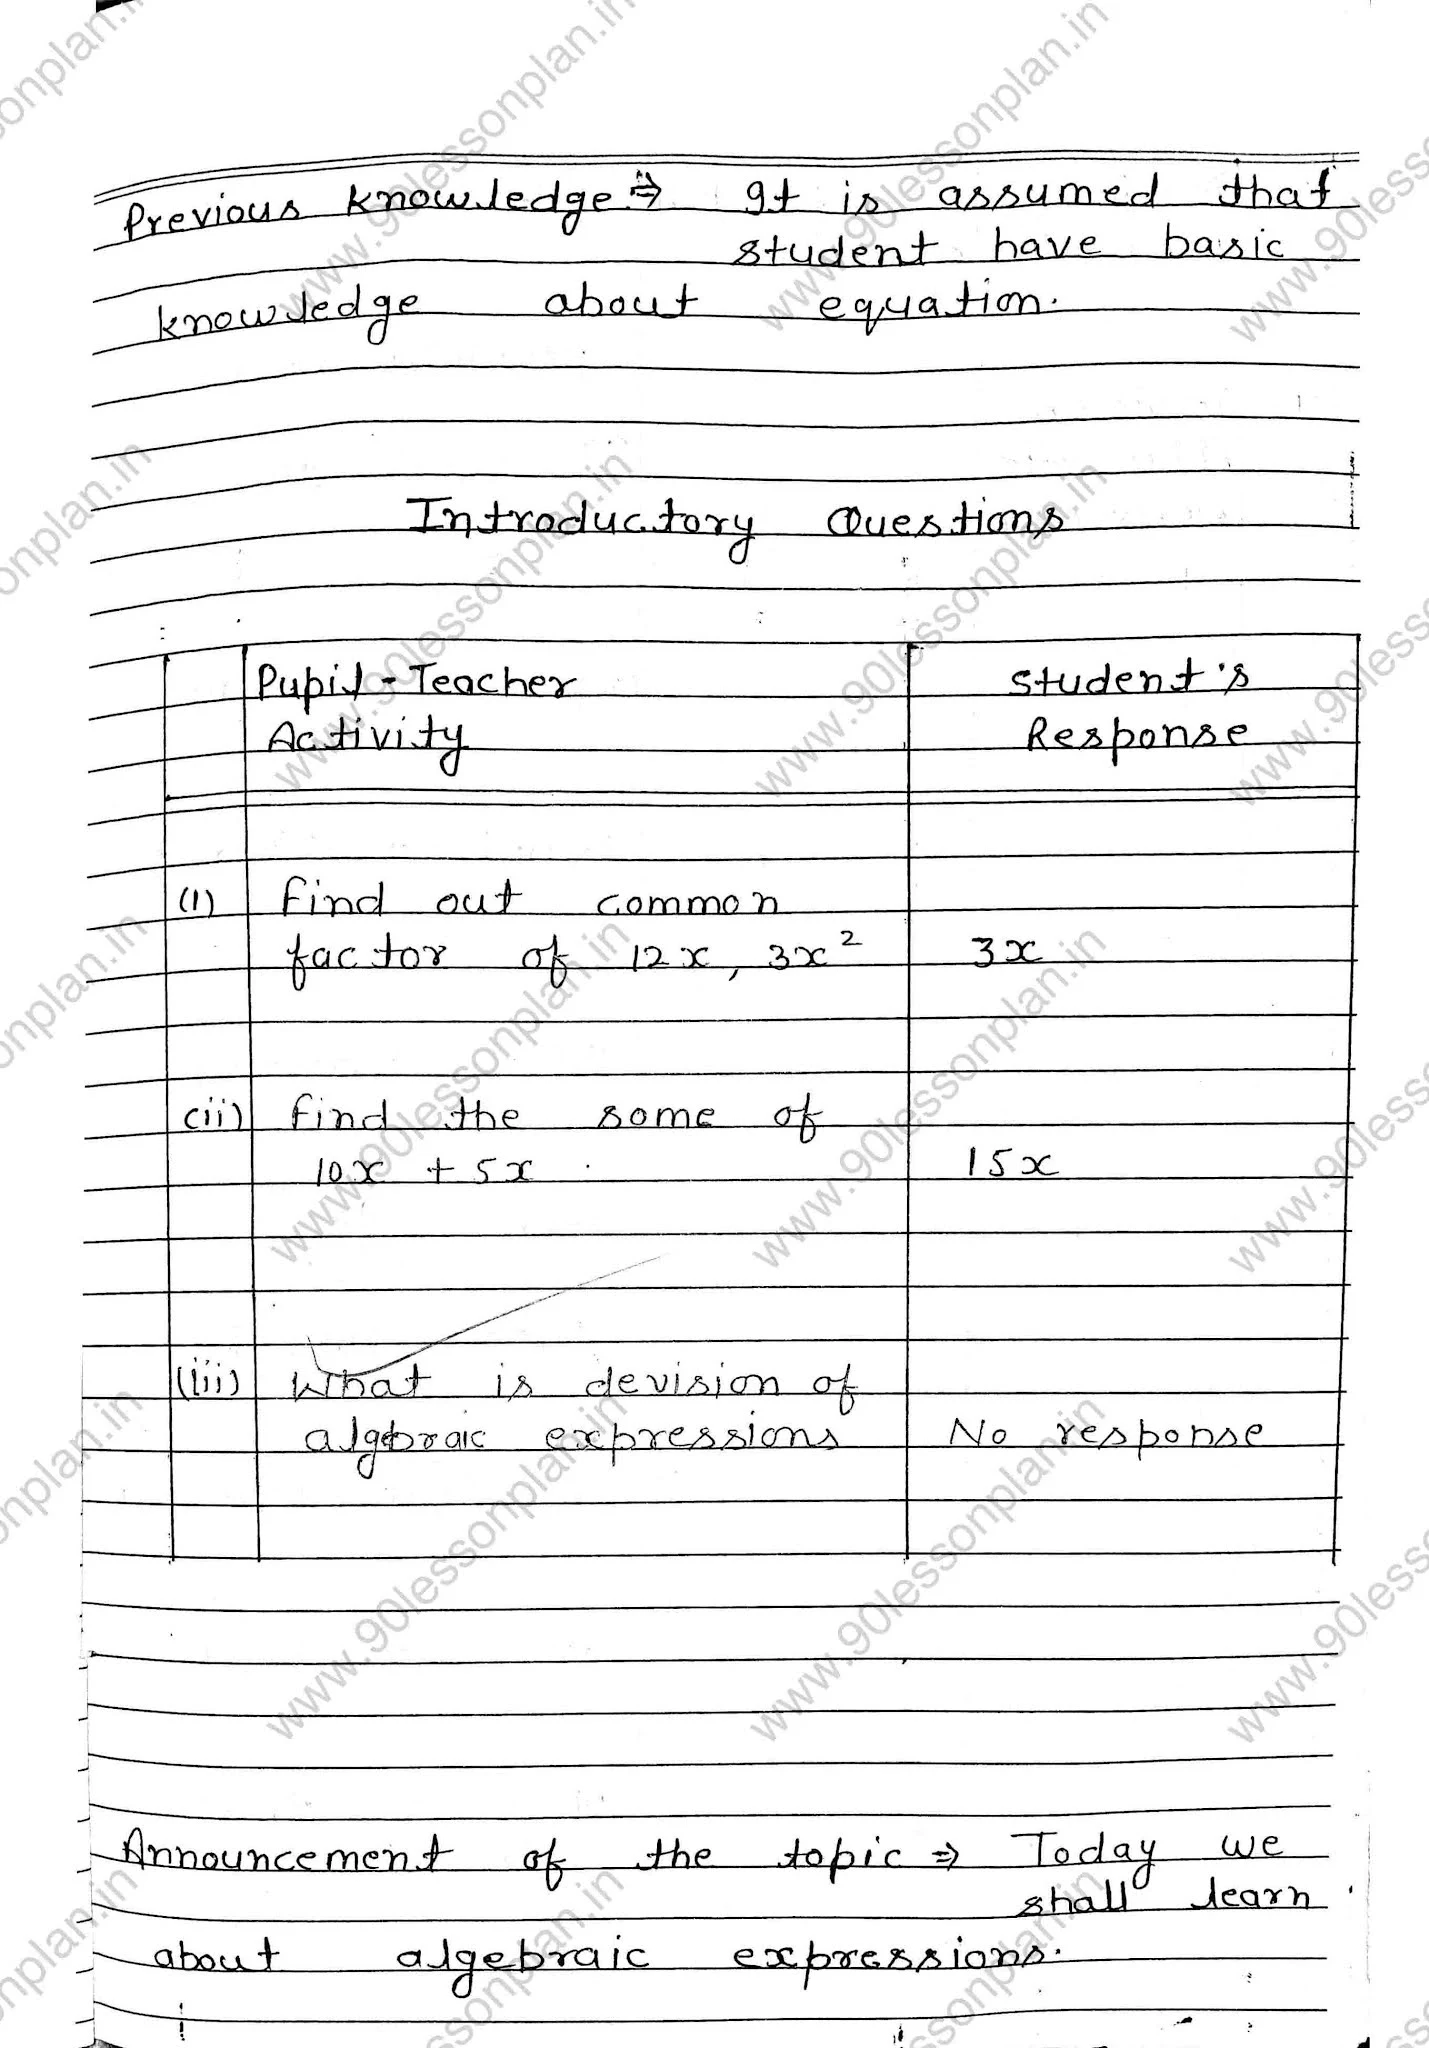 Previous knowledge ⇒ It is assumed that
student have basic
knowledge about equation.
Introductory Questions
Pupil-Teacher
Activity
Student's
Response
(1) Find out common
factor of 12x, 3x² 3x
(ii) Find the some of
10x + 5x 15x
(iii) What is devision of
algebraic expressions No response
Announcement of the topic ⇒ Today we
shall learn
about algebraic expressions.
www.90lessonplan.in